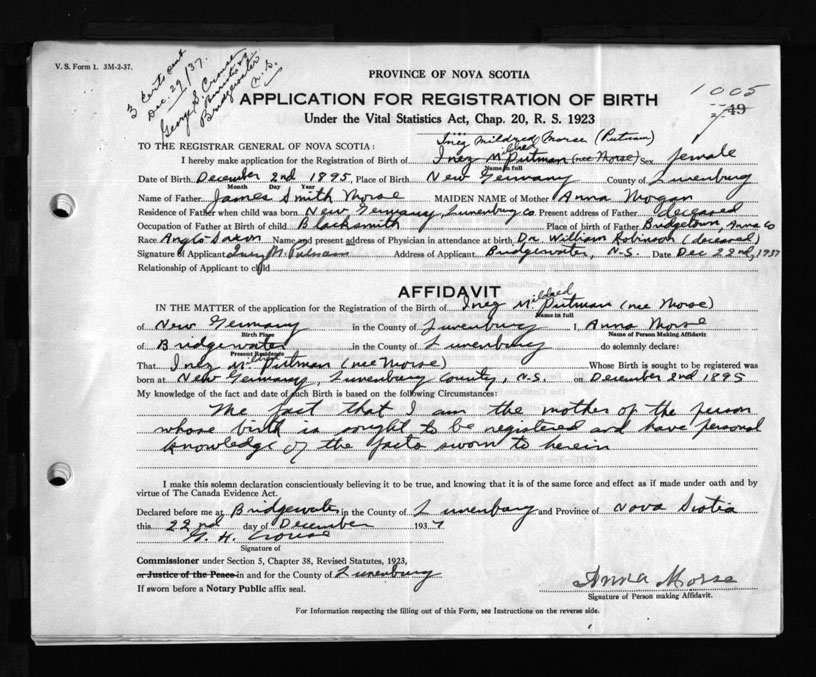 V. S. Form 1. 3M-2-37.
3 certs out
Dec. 29/37.
George S. Crouse
Bridgewater
N.S.
PROVINCE OF NOVA SCOTIA
1005
49
APPLICATION FOR REGISTRATION OF BIRTH
Under the Vital Statistics Act, Chap. 20, R. S. 1923
Inez Mildred Morse (Putman)
TO THE REGISTRAR GENERAL OF NOVA SCOTIA:
I hereby make application for the Registration of Birth of Inez Mildred Putman (nee Morse) Sex female
Name in full
Date of Birth December 2nd 1895, Place of Birth New Germany County of Lunenburg
Month Day Year
Name of Father James Smith Morse MAIDEN NAME of Mother Anna Mogan
Residence of Father when child was born New Germany, Lunenburg Co. Present address of Father deceased
Occupation of Father at Birth of child Blacksmith Place of birth of Father Bridgetown, Anna Co
Race Anglo Saxon Name and present address of Physician in attendance at birth, Dr. William Robinson (deceased)
Signature of Applicant Inez M. Putnam Address of Applicant Bridgewater, N.S. Date Dec 22nd, 1937
Relationship of Applicant to child
AFFIDAVIT
IN THE MATTER of the application for the Registration of the Birth of Inez Mildred Putman (nee Morse)
Name in full
of New Germany in the County of Lunenburg I, Anna Morse
Birth Place Name of Person Making Affidavit
of Bridgewater in the County of Lunenburg do solemnly declare:
Present Residence
That Inez Mildred Putman (nee Morse) Whose Birth is sought to be registered was
born at New Germany, Lunenburg County, N.S. on December 2nd 1895
My knowledge of the fact and date of such Birth is based on the following Circumstances:
The fact that I am the mother of the person
whose birth is sought to be registered and have personal
knowledge of the facts sworn to herein
I make this solemn declaration conscientiously believing it to be true, and knowing that it is of the same force and effect as if made under oath and by
virtue of The Canada Evidence Act.
Declared before me at Bridgewater, in the County of Lunenburg and Province of Nova Scotia
this 22nd day of December 1937
G. H. Crouse
Signature of
Commissioner under Section 5, Chapter 38, Revised Statutes, 1923,
or Justice of the Peace in and for the County of Lunenburg
If sworn before a Notary Public affix seal.
Anna Morse
Signature of Person making Affidavit.
For Information respecting the filling out of this Form, see Instructions on the reverse side.